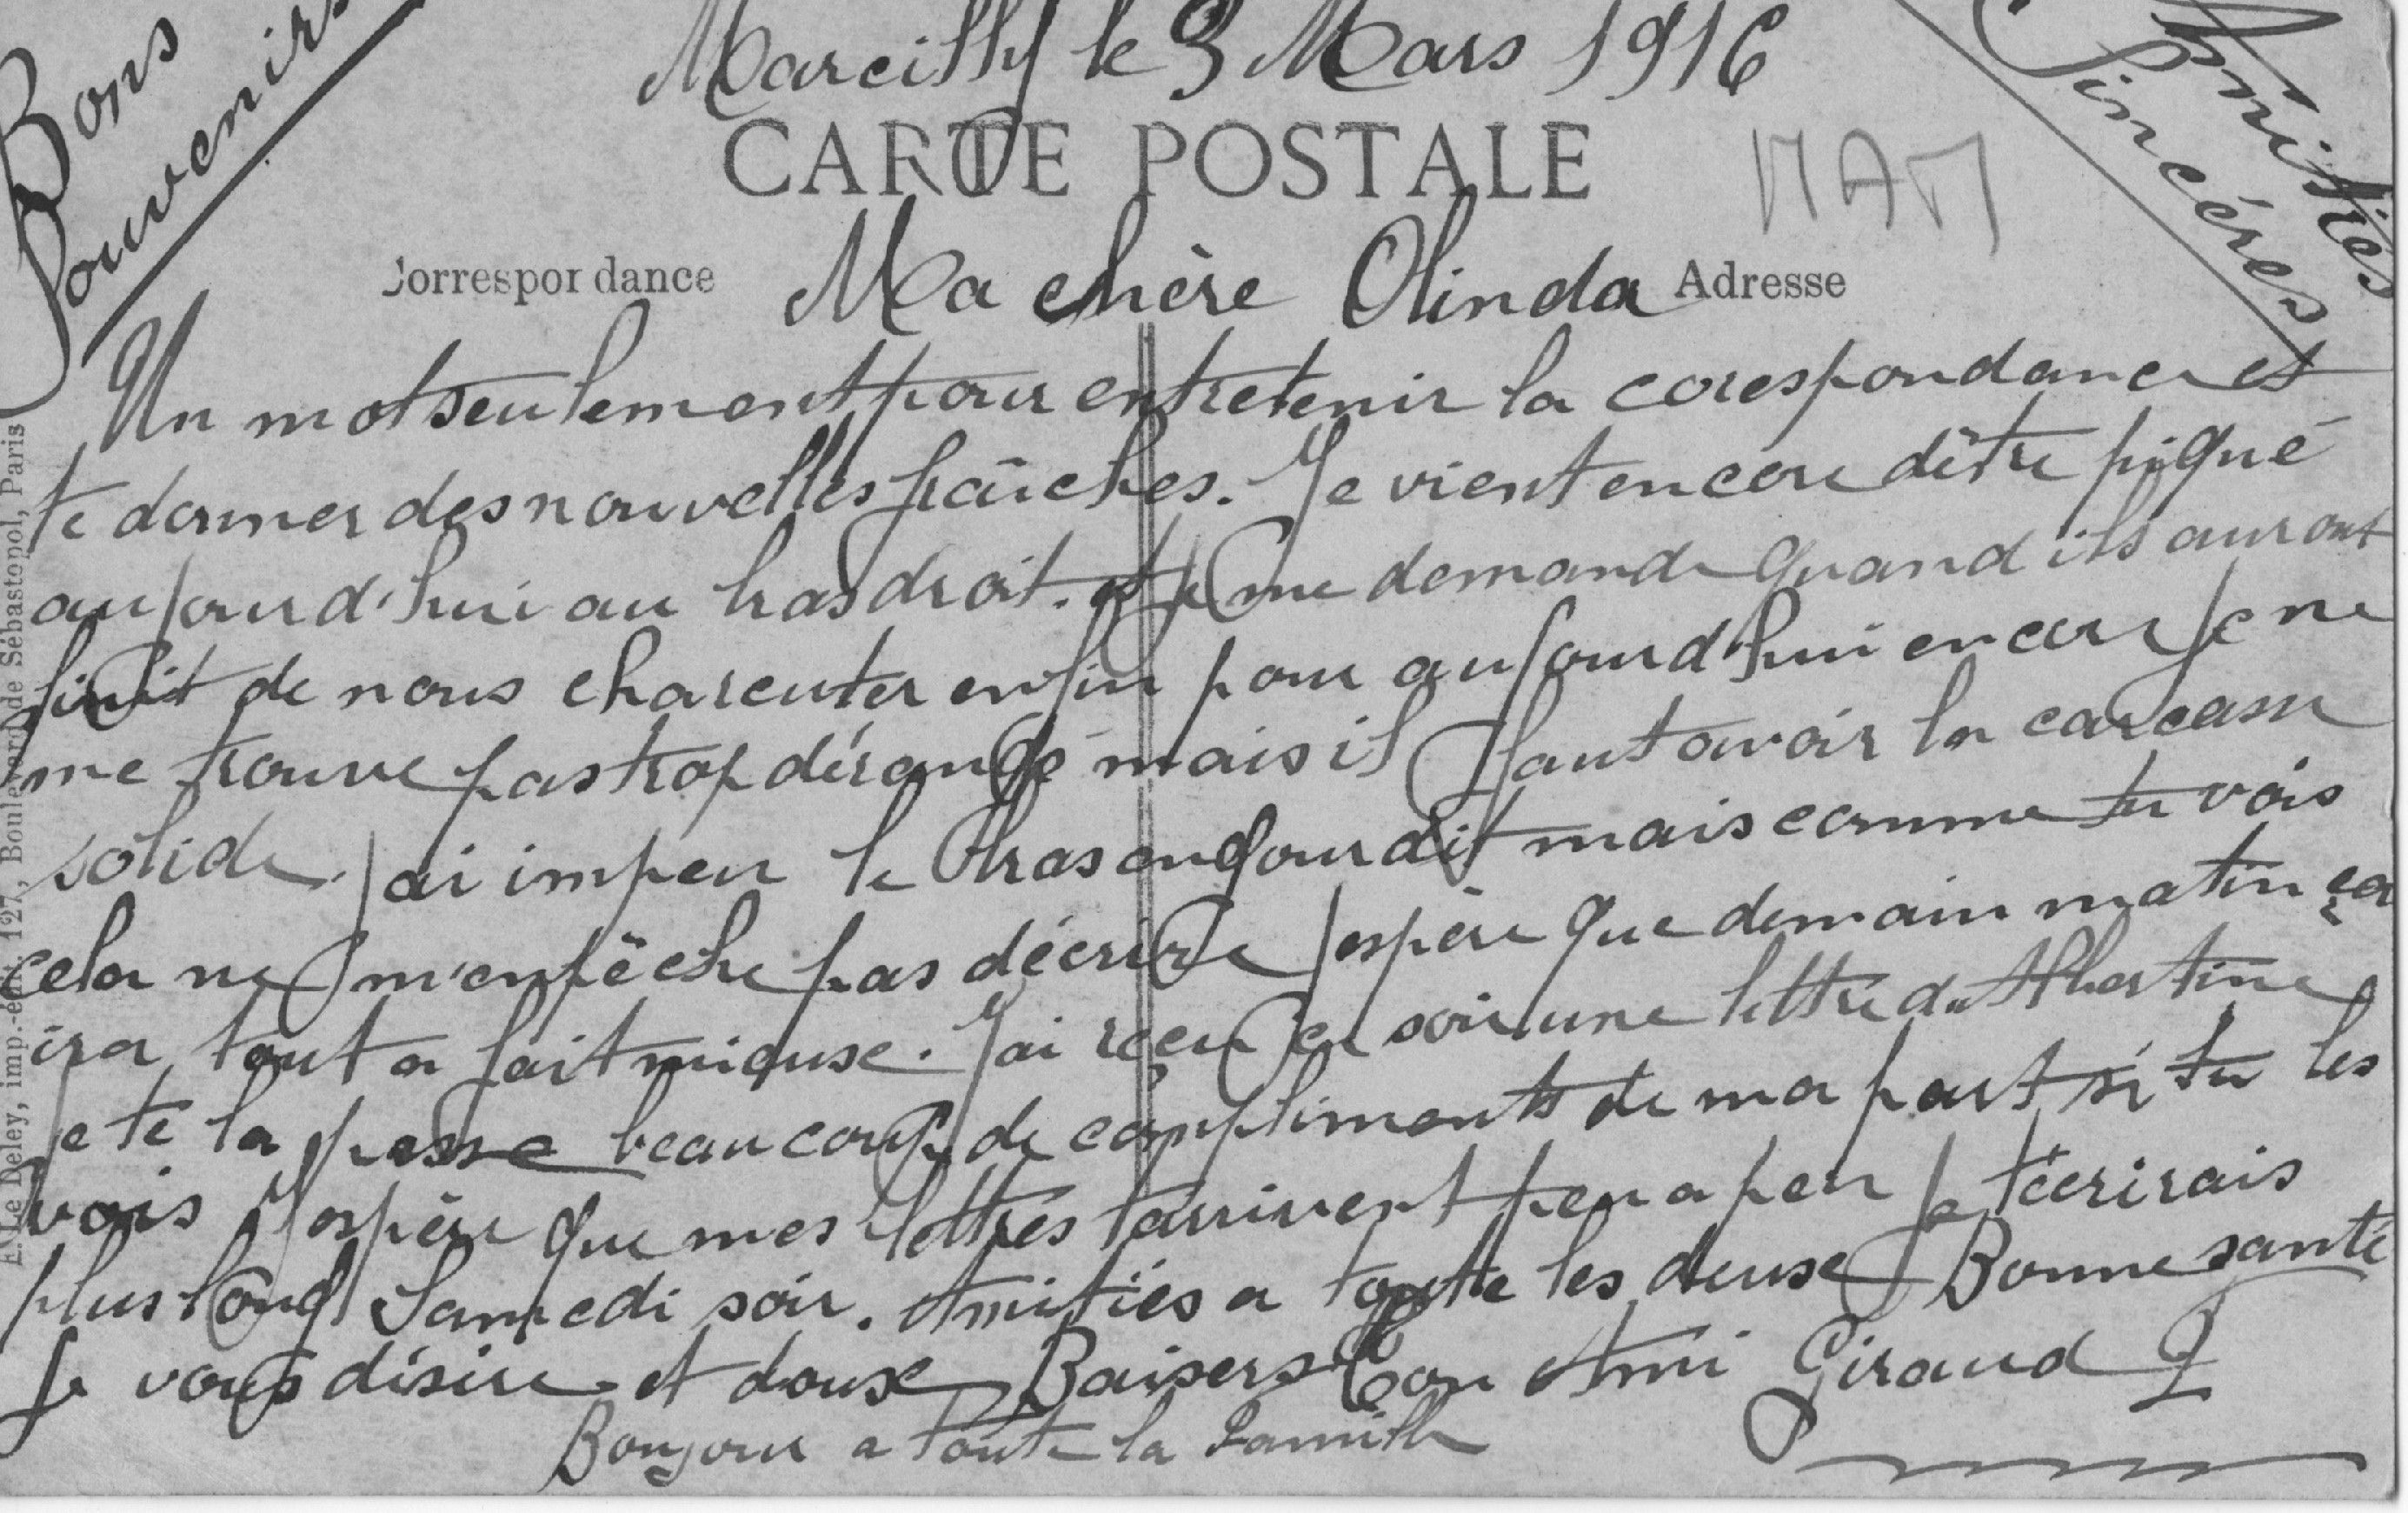 Bons
Souvenirs
Amitiés
Sincéres
Marcilly le 3 Mars 1916
CARTE POSTALE
MAM
Correspondance
Adresse
Ma chère Olinda
Un mot seulement pour entretenir la corespondance et
te donner des nouvelles fraîches. Je vient encore dêtre piqué
aujourd'hui au bras droit. et je me demande quand ils auront
finit de nous charcuter enfin pour aujourd'hui encore je ne
me trouve pas trop dérangé mais il faut avoir la carcasse
solide. J'ai impeu le bras engourdit mais comme tu vois
cela ne m'enpêche pas décrire j'espère que demain matin ça
ira tout a fait mieuse. J'ai reçu ce soir une lettre du Albertine
je te la passe beaucoup de compliments de ma part si tu les
vois J'espère que mes lettres t'arrivent peu a peu je técrirais
plus long Samedi soir. Amitiés a toute les deuse Bonne santé
Je vous désire et douse Baisers Ton Ami Giraud
Bonjour a toute la Famille
E. Le Deley, imp.-édit. 127, Boulevard de Sébastopol, Paris